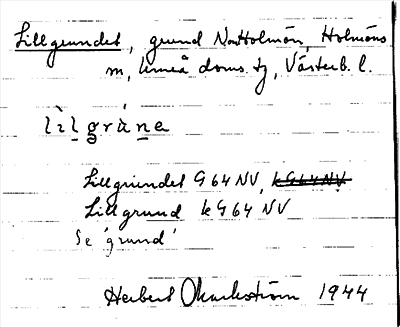 Lillgrundet, grund Norrholmön, Holmöns
sn, Umeå doms. tg, Västerb. l.
lìlgránɐ
Lillgrundet G 64 NV, k G 64 NV
Lillgrund k G 64 NV
Se 'grund'
Herbert Markström 1944